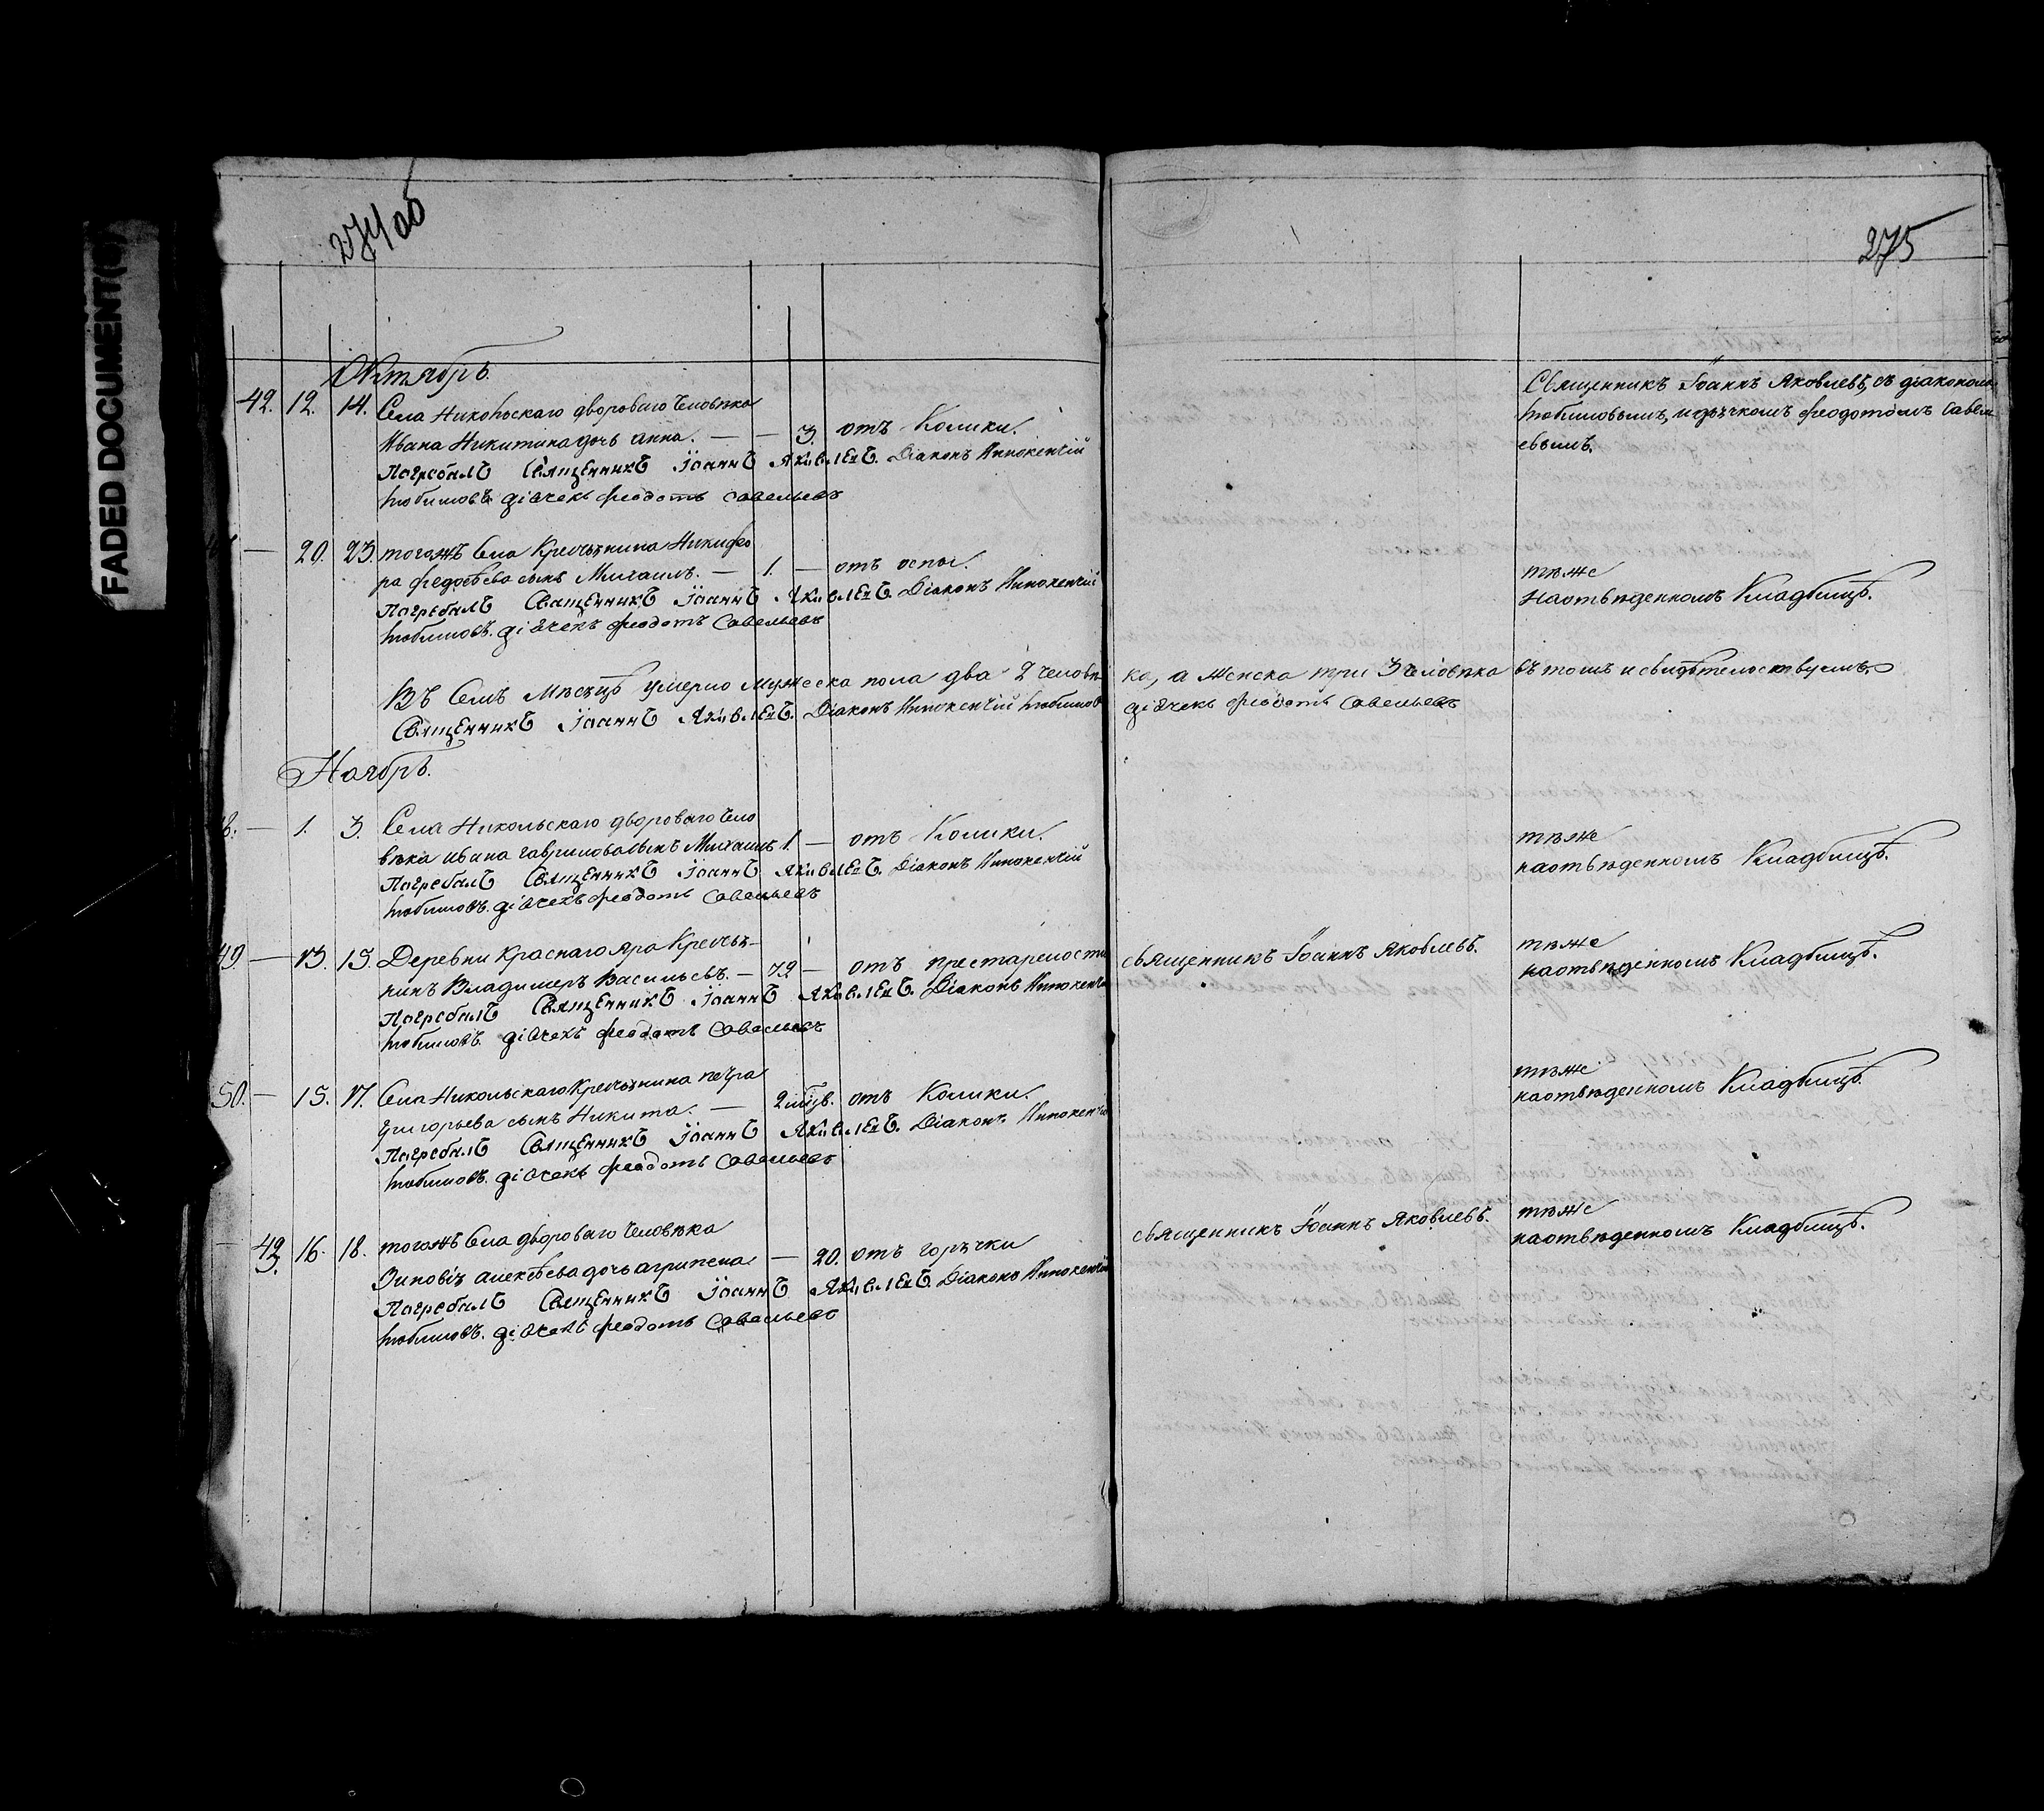 FADED DOCUMENT(S)
274 об
275
Октябрь.
42. 12. 14. Села Никольскаго двороваго человѣка
Ивана Никитина дочь анна. — — 3. отъ Колики.
Погребалъ Священникъ Iоаннъ Яковлевъ. Дiаконъ Иннокентiй
Любимовъ дiячекъ феодотъ Савельевъ
Священникъ Iоаннъ Яковлевъ, съ дiакономъ
Любимовымъ, и дьячкомъ феодотомъ Савель
евымъ.
— 20. 23. тогожъ Села Крестьянина Никифо
ра федосѣева сынъ Михаилъ. — 1. — отъ оспы.
Погребалъ Священникъ Iоаннъ Яковлевъ. Дiаконъ Иннокентiй
Любимовъ. дiячекъ феодотъ Савельевъ
тѣже
На отвѣденномъ Кладбищѣ.
Въ Семъ Мѣсяцѣ умерло Мужеска пола два 2 человѣ
ка, а женска три 3 человѣка въ томъ и свидѣтельствуемъ
Священникъ Iоаннъ Яковлевъ. Дiаконъ Иннокентiй Любимовъ
дiячекъ феодотъ Савельевъ
Ноябрь.
8. — 1. 3. Села Никольскаго двороваго чело
вѣка ивана гаврилова сынъ Михаилъ 1. — отъ Колики.
Погребалъ Священникъ Iоаннъ Яковлевъ. Дiаконъ Иннокентiй
Любимовъ. дiячекъ феодотъ Савельевъ
тѣже
на отвѣденномъ Кладбищѣ.
49. — 13. 15. Деревни Краснаго яра Крестья-
нинъ Владимеръ Васильевъ. — 72 — отъ престарелости
Погребалъ Священникъ Iоаннъ Яковлевъ. Дiаконъ Иннокентiй
Любимовъ. дiячекъ феодотъ Савельевъ
священникъ Iоаннъ Яковлевъ.
тѣже
на отвѣденномъ Кладбищѣ.
50. — 15. 17. Села Никольскаго Крестьянина петра
григорьева сынъ Никита. — 2 мѣсяц. отъ Колики.
Погребалъ Священникъ Iоаннъ Яковлевъ. Дiаконъ Иннокентiй
Любимовъ. дiячекъ феодотъ Савельевъ
тѣже
на отвѣденномъ Кладбищѣ.
— 43. 16. 18. тогожъ Села двороваго человѣка
Зиновiя алексѣева дочь агрипена — 20. отъ горячки
Погребалъ Священникъ Iоаннъ Яковлевъ. Дiаконъ Иннокентiй
Любимовъ. дiячекъ феодотъ Савельевъ
священникъ Iоаннъ Яковлевъ.
тѣже
на отвѣденномъ Кладбищѣ.